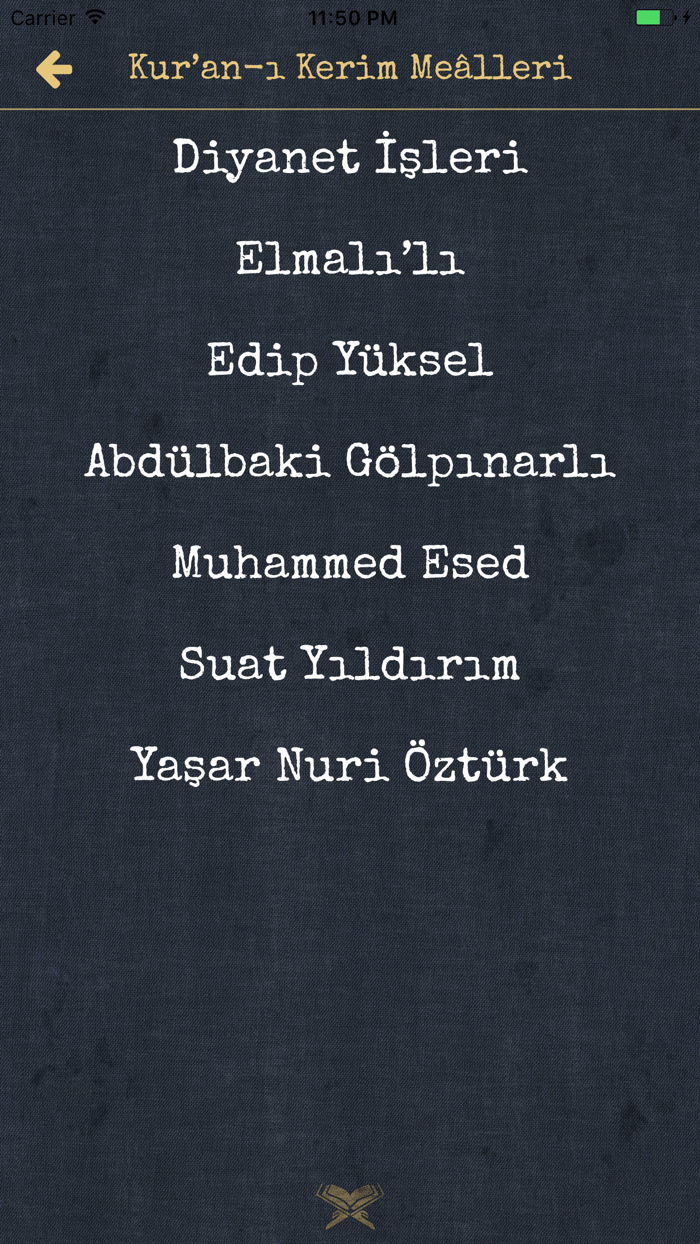 Carrier 11:50 PM
Kur’an-ı Kerim Meâlleri
Diyanet İşleri
Elmalı’lı
Edip Yüksel
Abdülbaki Gölpınarlı
Muhammed Esed
Suat Yıldırım
Yaşar Nuri Öztürk